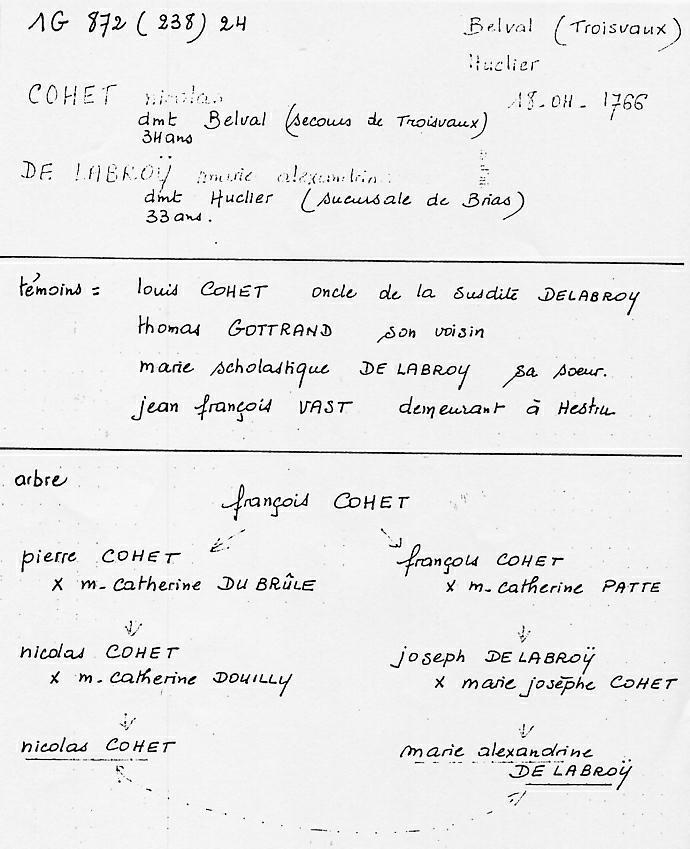 1G 872 (238) 24
Belval (Troisvaux)
Huclier
18-04-1766
COHET nicolas
dmt Belval (secours de Troisvaux)
34ans
DE LABROŸ marie alexandrine
dmt Huclier (sucursale de Brias)
33 ans.
témoins = louis COHET oncle de la susdite DELABROY
thomas GOTTRAND son voisin
marie scholastique DE LABROY sa soeur.
jean françois VAST demeurant à Hestru
arbre
françois COHET
pierre COHET
x m-catherine DU BRÛLE
françois COHET
x m-catherine PATTE
nicolas COHET
x m-catherine DOUILLY
joseph DE LABROŸ
x marie josèphe COHET
nicolas COHET
marie alexandrine
DE LABROŸ